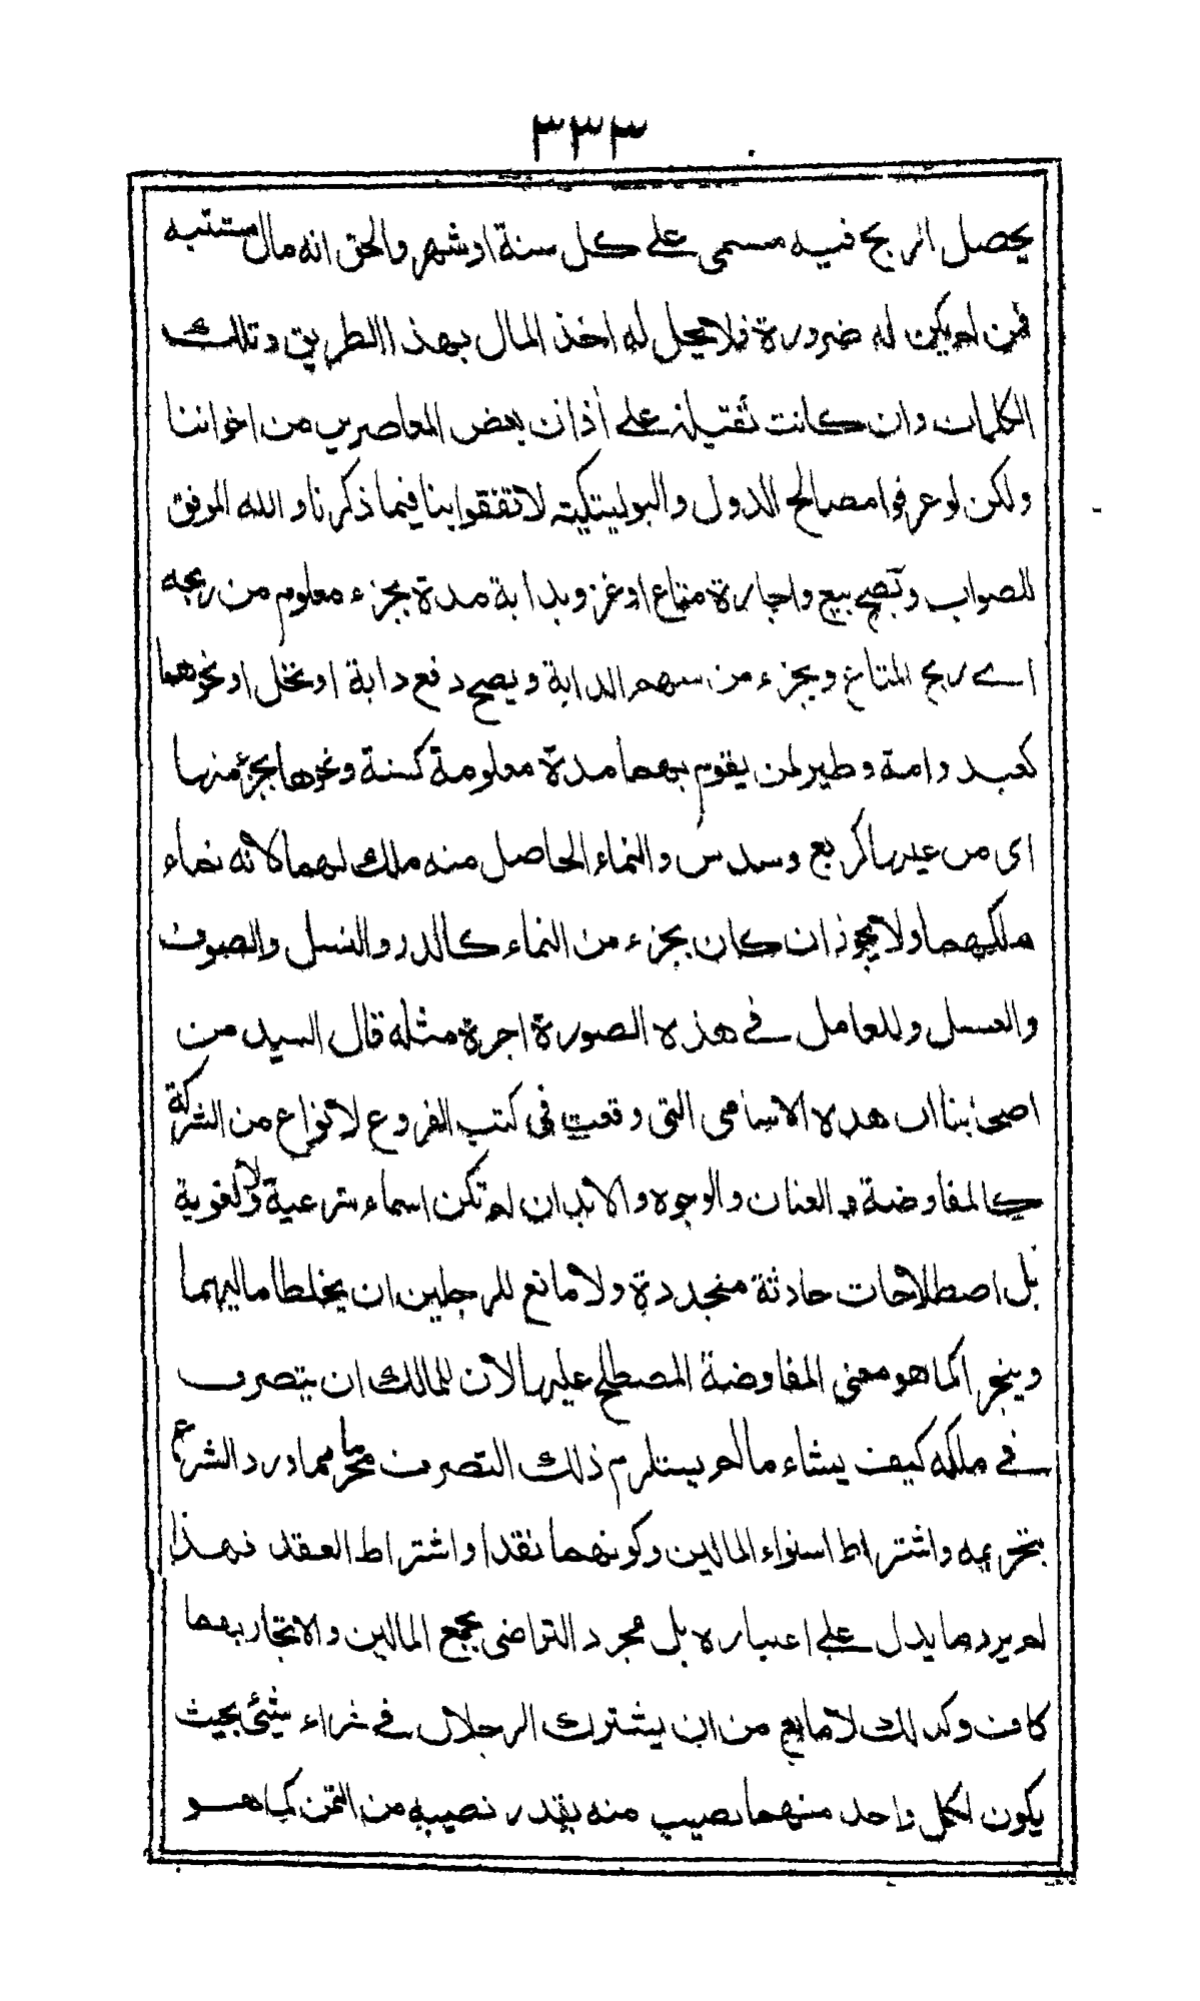 ٣٣٣
يحصل الربح فيه مسمى على كل سنة او شهر والحق انه مال مشتبه
فمن لم يكن له ضرورة فلا يحل له اخذ المال بهذا الطريق وتلك
الكلمات وان كانت ثقيلة على أذان بعض المعاصرين من اخواننا
ولكن لو عرفوا مصالح الدول والبوليتيكيته لاتفقوا بنا فيما ذكرنا والله الموفق
للصواب وتصح بيع واجارة متاع او غزو بدابة مدة بجزء معلوم من ربحه
اے ربح المتاع وبجزء من سهم الدابة ويصح دفع دابة او نخل او نحوهما
كعبد وامة وطير لمن يقوم بهما مدة معلومة كسنة ونحوها بجزء منها
اى من عينها كربع وسدس والنماء الحاصل منه ملك لهما لانه نماء
ملكهما ولا يجوز ان كان بجزء من النماء كالدر والنسل والصوف
والعسل وللعامل فے هذه الصورة اجرة مثله قال السيد من
اصحابنا ان هذه الاسامى التى وقعت فى كتب الفروع لانواع من الشركة
كالمفاوضة والعنان والوجوه والابدان لم تكن اسماء شرعية ولا لغوية
بل اصطلاحات حادثة متجددة ولا مانع للرجلين ان يخلطا ماليهما
ويتجرا كما هو معنى المفاوضة المصطلح عليها لان للمالك ان يتصرف
فے ملكه كيف يشاء ما لم يستلزم ذلك التصرف محرما مما ورد الشرع
بتحريمه واشتراط استواء المالين وكونهما نقدا واشتراط العقد فهذا
لم يرد ما يدل على اعتباره بل مجرد التراضى بجمع المالين والاتجار بهما
كاف وكذلك لا مانع من ان يشترك الرجلان فے شراء شيئ بحيث
يكون لكل واحد منهما نصيب منه بقدر نصيبه من الثمن كما هو